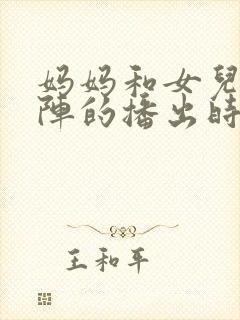 妈妈和女兒
陣的播出時
王和平